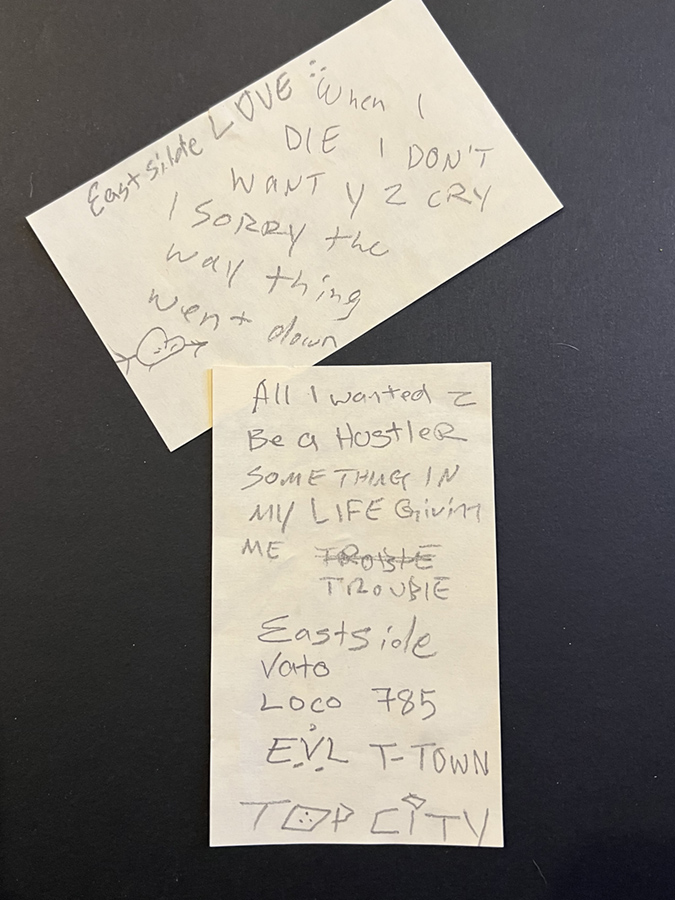 Eastside LOVE When I
DIE I DON'T
WANT Y 2 CRY
I SORRY the
way thing
went down
All I wanted 2
Be a HustleR
SOMETHING IN
MY LIFE Givin
ME TROUBIE
TROUBIE
Eastside
Vato
LOCO 785
EVL T-TOWN
TOP CITY